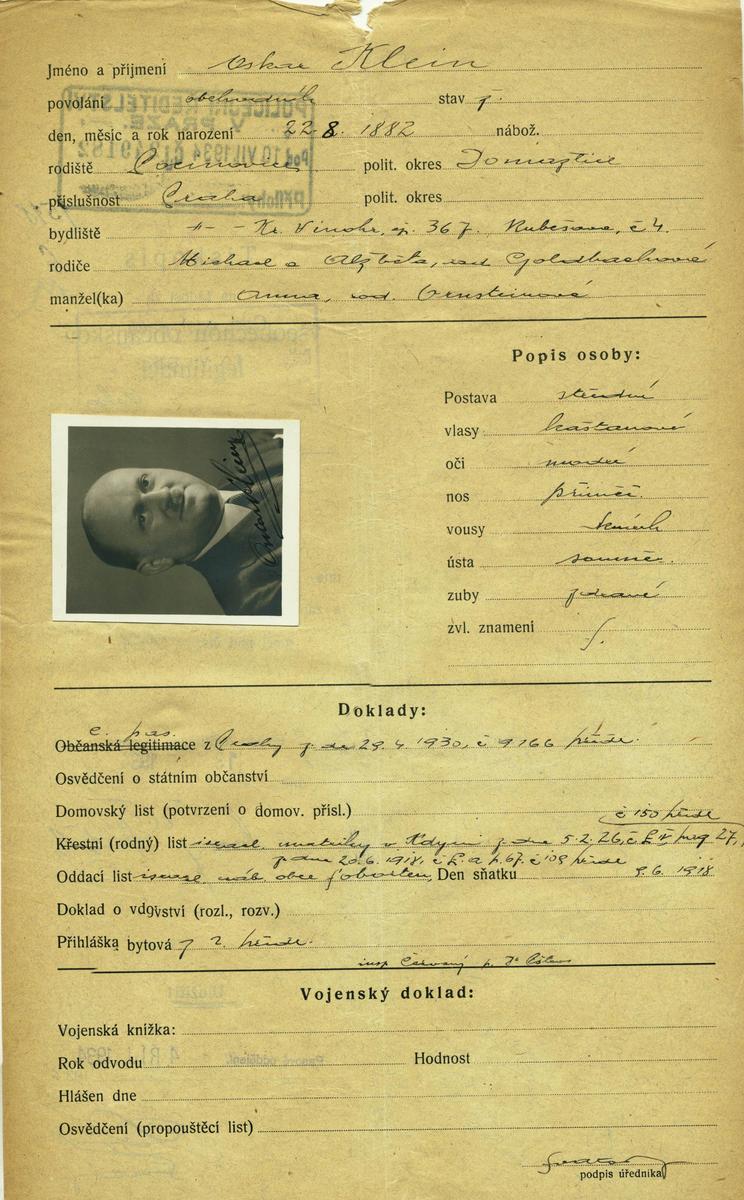 Jméno a příjmení Oskar Klein
povolání obchodník stav ž.
den, měsíc a rok narození 22. 8. 1882 nábož.
rodiště Pocinovice polit. okres Domažlice
příslušnost Praha polit. okres
bydliště Kr. Vinohr. čp. 367. Rubešova, č 4.
rodiče Michael a Alžběta, roz. Goldbachová
manžel(ka) Anna, roz. Ornsteinová
Popis osoby:
Postava střední
vlasy kaštanové
oči modré
nos přímý
vousy
ústa souměr.
zuby zdravé
zvl. znamení
Doklady:
c. pas.
Občanská legitimace z Prahy z de 29. 4. 1930, č 9166
Osvědčení o státním občanství
Domovský list (potvrzení o domov. přísl.)
č 150
Křestní (rodný) list israel. matriky v Kdyni z dne 5. 2. 26, č 27,
z dne 20. 6. 1918, č p. 67. č 109
Oddací list israel náb obce Den sňatku 9. 6. 1918
Doklad o vdovství (rozl., rozv.)
Přihláška bytová z 2.
insp. Červený
Vojenský doklad:
Vojenská knížka:
Rok odvodu Hodnost
Hlášen dne
Osvědčení (propouštěcí list)
podpis úředníka